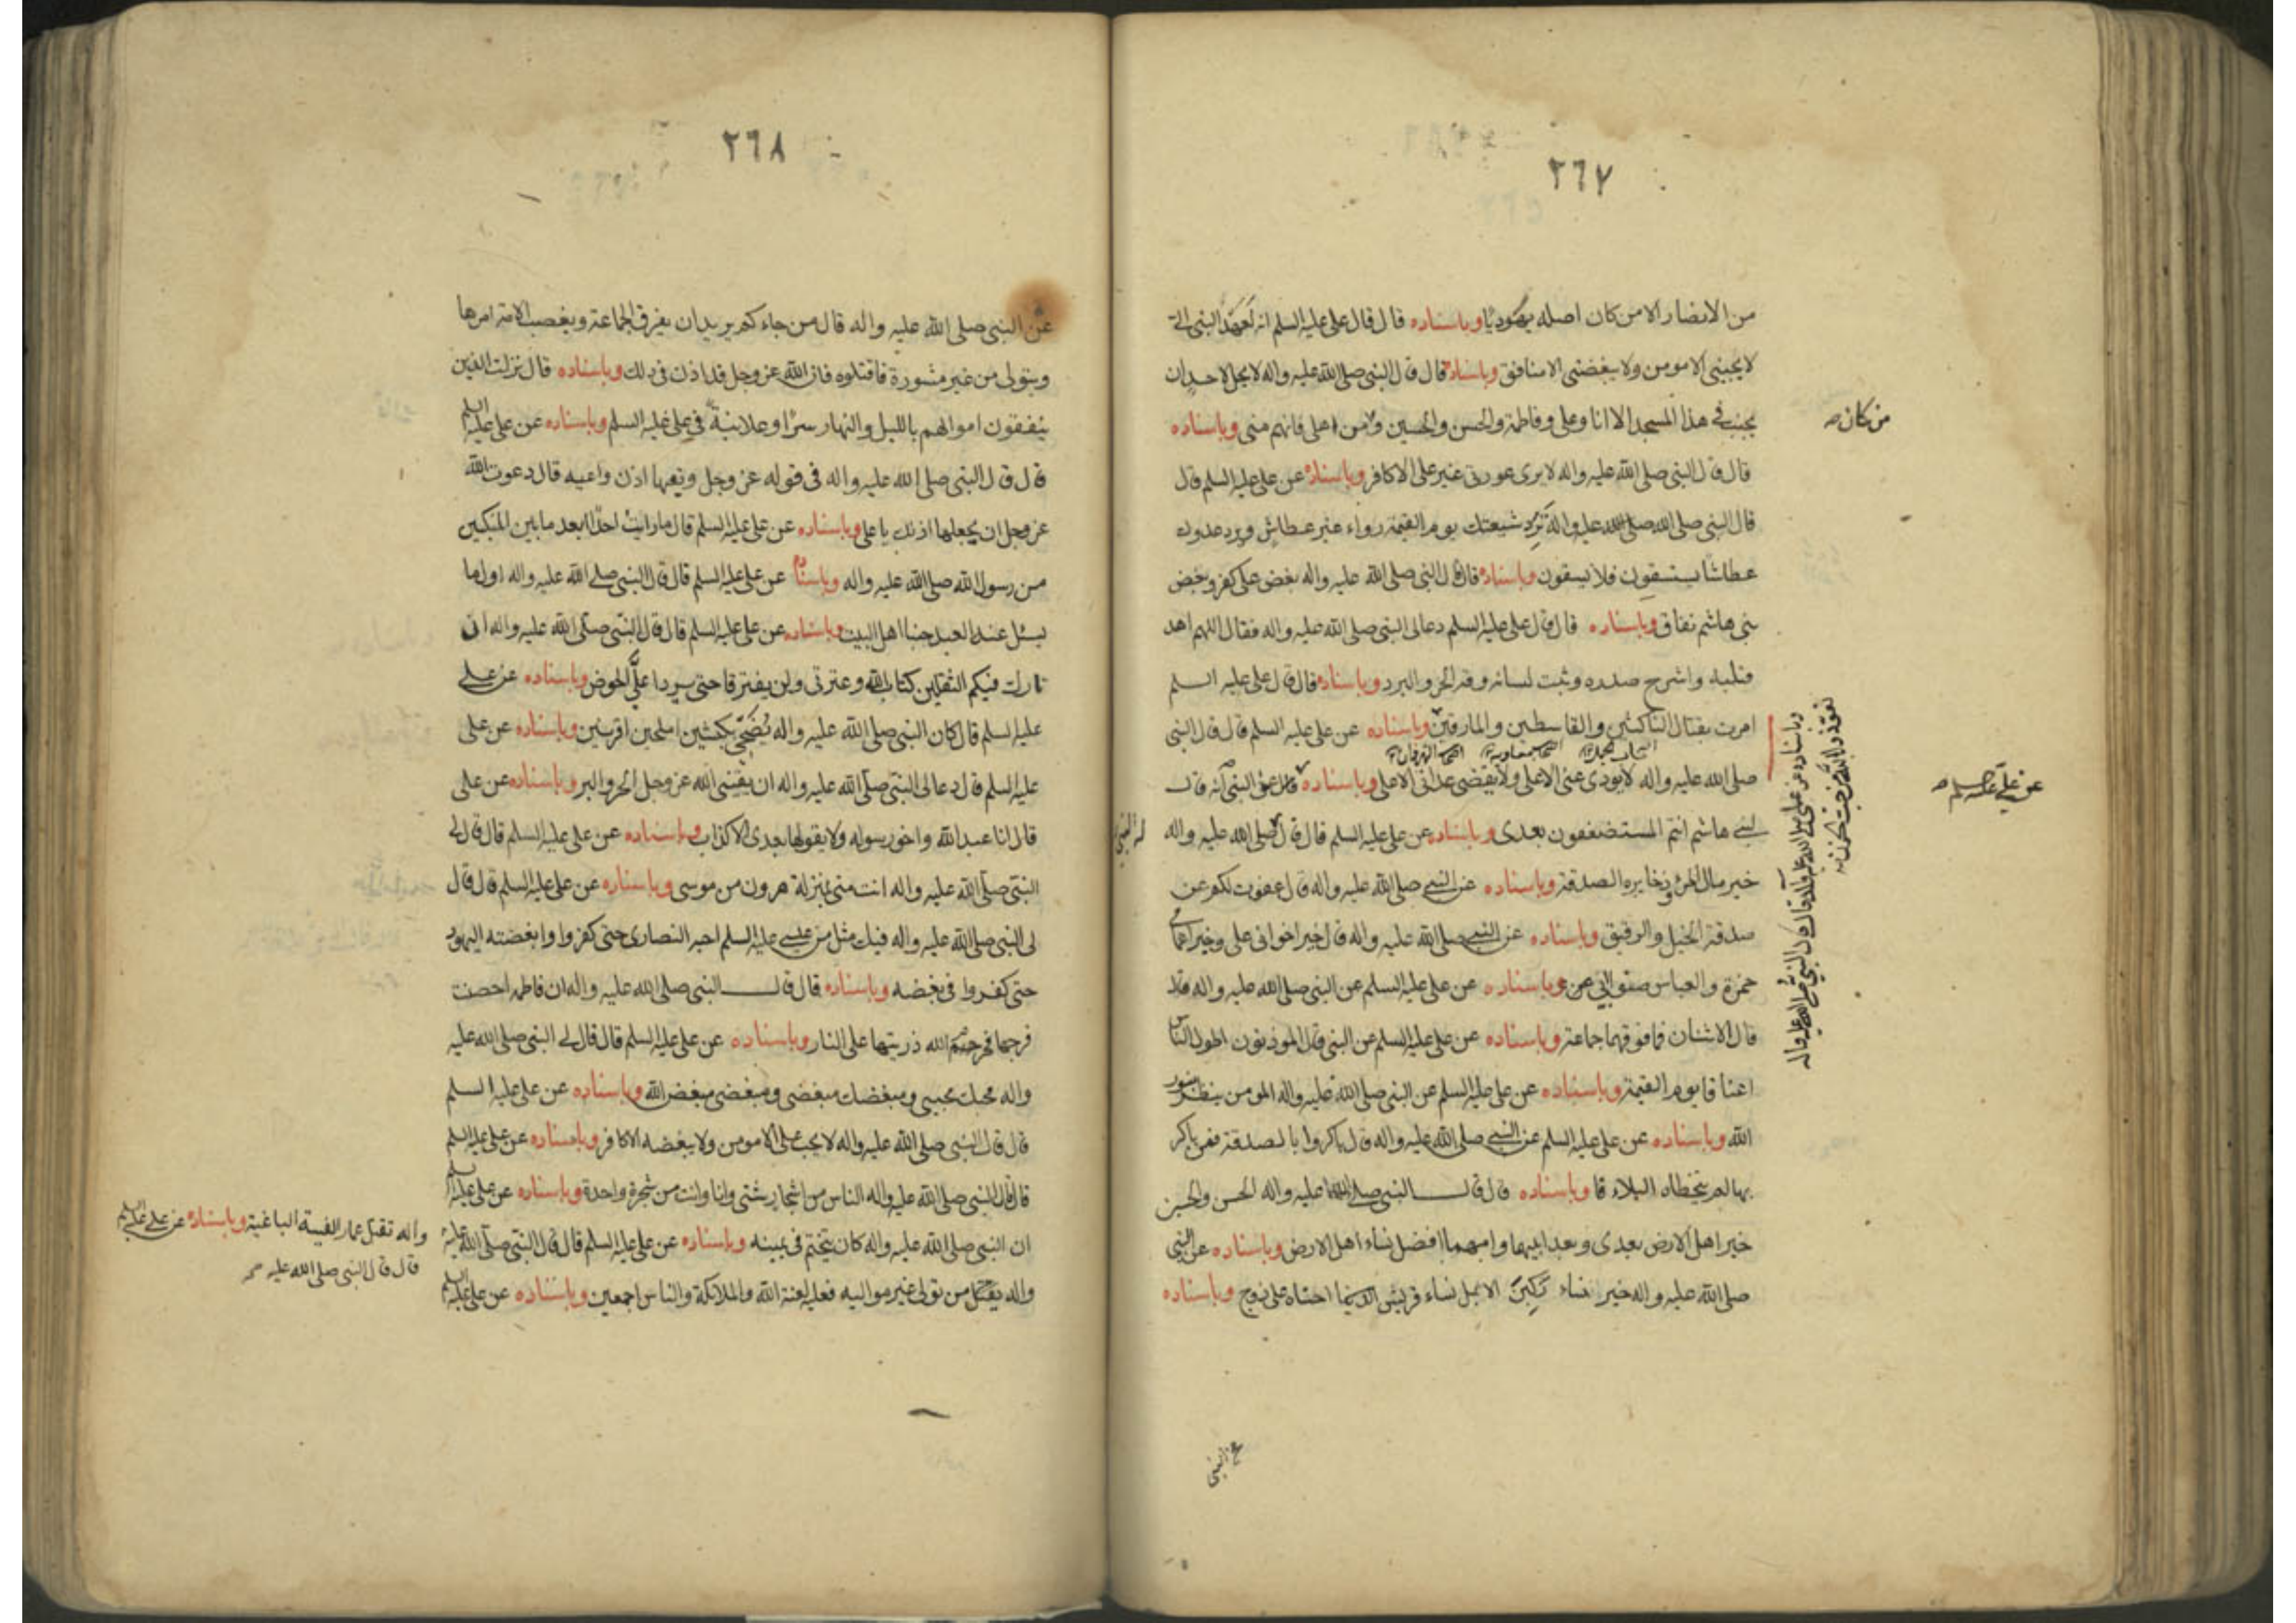 ٢٦٧
من الانصار الا من كان اصله يهوديا وباسناده قال قال علي عليه السلم انه لعهد النبي الي
لا يحبني الا مومن ولا يبغضني الا منافق وباسناده قال قال النبي صلى الله عليه واله لا يحل لاحد ان
يجنب في هذا المسجد الا انا وعلي وفاطمة والحسن والحسين ومن اهلي فانهم مني وباسناده
من كان صح
قال قال النبي صلى الله عليه واله لا يرى عورتي غير علي الا كافر وباسناده عن علي عليه السلم قال
قال النبي صلى الله عليه واله ترد شيعتك يوم القيمة رواء غير عطاش ويرد عدوك
عطاشا يستسقون فلا يسقون وباسناده قال قال النبي صلى الله عليه واله بغض علي كفر وبغض
بني هاشم نفاق وباسناده قال قال علي عليه السلم دعا لي النبي صلى الله عليه واله فقال اللهم اهد
قلبه واشرح صدره وثبت لسانه وقه الحر والبرد وباسناده قال قال علي عليه السلم
امرت بقتال الناكثين والقاسطين والمارقين وباسناده عن علي عليه السلم قال قال النبي
صلى الله عليه واله لا يودى عني الا علي ولا يقضي عداتي الا علي وباسناده عن النبي انه قال
عن علي عليه السلم صح
لبني هاشم انتم المستضعفون بعدي وباسناده عن علي عليه السلم قال قال صلى الله عليه واله
خير مال المرء وذخايره الصدقة وباسناده عن النبي صلى الله عليه واله قال عفوت لكم عن
صدقة الخيل والرقيق وباسناده عن النبي صلى الله عليه واله قال خير اخواني علي وخير اعمامي
حمزة والعباس صنو ابي وباسناده عن علي عليه السلم عن النبي صلى الله عليه واله
قال الاثنان فما فوقهما جماعة وباسناده عن علي عليه السلم عن النبي قال الموذنون اطول الناس
اعناقا يوم القيمة وباسناده عن علي عليه السلم عن النبي صلى الله عليه واله المومن ينظر بنور
الله وباسناده عن علي عليه السلم عن النبي صلى الله عليه واله قال باكروا بالصدقة فمن باكر
بها لم يتخطاه البلاء وباسناده قال قال النبي صلى الله عليه واله الحسن والحسين
خير اهل الارض بعدي وبعد ابيهما وامهما افضل نساء اهل الارض وباسناده عن النبي
صلى الله عليه واله خير نساء ركبن الابل نساء قريش احناه على زوج وباسناده
عن النبي
٢٦٨
عن النبي صلى الله عليه واله قال من جاءكم يريد ان يفرق الجماعة ويغصب الامة امرها
ويتولى من غير مشورة فاقتلوه فان الله عز وجل قد اذن في ذلك وباسناده قال نزلت الذين
ينفقون اموالهم بالليل والنهار سرا وعلانية في علي عليه السلم وباسناده عن علي عليه السلم
قال قال النبي صلى الله عليه واله في قوله عز وجل وتعيها اذن واعيه قال دعوت الله
عز وجل ان يجعلها اذنك يا علي وباسناده عن علي عليه السلم قال ما رايت احدا ابعد ما بين المنكبين
من رسول الله صلى الله عليه واله وباسناده عن علي عليه السلم قال قال النبي صلى الله عليه واله اول ما
يسئل عنه العبد حبنا اهل البيت وباسناده عن علي عليه السلم قال قال النبي صلى الله عليه واله ان
تارك فيكم الثقلين كتاب الله وعترتي ولن يفترقا حتى يردا علي الحوض وباسناده عن علي
عليه السلم قال كان النبي صلى الله عليه واله يضحي بكبشين املحين اقرنين وباسناده عن علي
عليه السلم قال دعا لي النبي صلى الله عليه واله ان يقيني الله عز وجل الحر والبر وباسناده عن علي
قال انا عبد الله واخو رسوله ولا يقولها بعدي الا كذاب وباسناده عن علي عليه السلم قال قال لي
النبي صلى الله عليه واله انت مني بمنزلة هرون من موسى وباسناده عن علي عليه السلم قال قال
لي النبي صلى الله عليه واله فيك مثل من عيسى عليه السلم احبه النصارى حتى كفروا وابغضته اليهود
حتى كفروا في بغضه وباسناده قال قال النبي صلى الله عليه واله ان فاطمه احصنت
فرجها فحرم الله ذريتها على النار وباسناده عن علي عليه السلم قال قال لي النبي صلى الله عليه
واله محبك محبي ومبغضك مبغضي ومبغضي مبغض الله وباسناده عن علي عليه السلم
قال قال النبي صلى الله عليه واله لا يحب علي الا مومن ولا يبغضه الا كافر وباسناده عن علي عليه السلم
قال قال النبي صلى الله عليه واله الناس من اشجار شتى وانا وانت من شجرة واحدة وباسناده عن علي عليه السلم
ان النبي صلى الله عليه واله كان يتختم في يمينه وباسناده عن علي عليه السلم قال قال النبي صلى الله عليه
واله تقتل عمار الفية الباغية وباسناده عن علي عليه السلم
قال قال النبي صلى الله عليه صح
واله من تولى غير مواليه فعليه لعنة الله والملائكة والناس اجمعين وباسناده عن علي عليه السلم